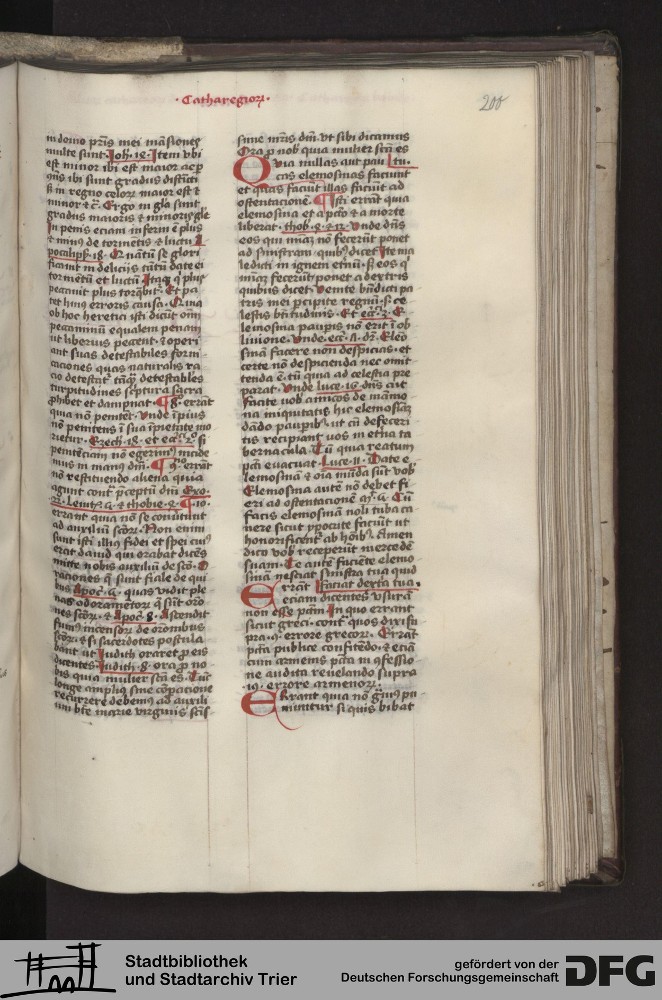 Catharegior
200
in domo pris mei mansiones
multe sunt Joh. 14. Item vbi
est minor ibi est maior
ibi sunt gradus distincti
in regno celor maior est et
minor Ergo in gla sunt
gradus maioris et minoris gle
In penis eciam inferni plus
et minus de tormetis et luctu A
pocalips. 18. glori
ficauit in delicijs tantu date ei
tormetu et luctu Itaq qui plus
peccauit plus torqbit. Et pa
tet huius erroris causa. Quia
ob hoc heretici isti dicut om
peccaminu equalem penam
ut liberius peccent et operi
ant suas detestabiles forni
caciones quas naturalis ra
cio detestat tanq detestabiles
turpitudines scptura sacra
phibet et dampnat. 8. errat
quia non penitet. Vnde ipius
non penitens i sua ipietate mo
rietur. Ezech. 18. et
penitenciam non egerimus incide
mus in manus dni. errat
non restituendo aliena quia
agunt contra preceptu dni Exo.
Leuitici et thobie. 2. 10.
errant quia no se conuertunt
ad auxiliu scor. Non enim
sunt isti illius fidei et spei cuius
erat dauid qui orabat dices
mitte nobis auxiliu de sco. O
raciones sunt fiale de qui
bus Apoc. 5. quas vidit ple
nas odoramentor sunt oro
nes scor. et Apoc. 8. Ascendit
fumus incensor de oronibus
scor. et si sacerdotes postula
bant ut Judith oraret p eis
dicentes Judith. 8. ora p no
bis quia mulier sca es.
longe amplius sine compacione
recurrere debemus ad auxili
um bte marie virginis scis
sime mris dni vt sibi dicamus
Ora p nob quia mulier sca es
Quia nullas aut pau
cas elemosinas faciunt
et quas faciut illas faciut ad
ostentacione. Isti errat quia
elemosina et a pcto et a morte
liberat. thob. 4. et 12. vnde dns
eos qui miam no fecerut ponet
ad sinistram quibus dicet Ite ma
ledicti in ignem eternu. eos qui
miam fecerut ponet a dextris
quibus dicet Venite bndicti pa
tris mei pcipite regnu. ce
lestis btitudinis. Et E
lemosina paupis no erit i ob
liuione. Vnde Elemo
sina facere non despicias. et
certe non despicienda nec omit
tenda tu quia ad celestia pre
parat. Vnde luce. 16. dns ait
facite vob amicos de mamo
na iniquitatis hic elemosias
dado paupibus. ut cu defeceri
tis recipiant vos in eterna ta
bernacula. Tu quia reatum
pcti euacuat. Luce. 11. Date e
lemosina et oia muda sut vob
Elemosina aute no debet fi
eri ad ostentacione Cu
facis elemosina noli tuba ca
nere sicut ypocrite faciut ut
honorificent ab hoibus. Amen
dico vob receperut mercede
suam. Te aute faciete elemo
sina nesciat sinistra tua quid
Errat faciat dextra tua.
eciam dicentes vsura
non esse pctm In quo errant
sicut greci. contra quos dixi su
pra. errore grecor. Errat
pcta publice confitedo. et ecia
cum armenis pcta in confessio
ne audita reuelando supra
errore armenor.
Errant quia no pu
niuntur si quis bibat
Stadtbibliothek
und Stadtarchiv Trier
gefördert von der
Deutschen Forschungsgemeinschaft
DFG